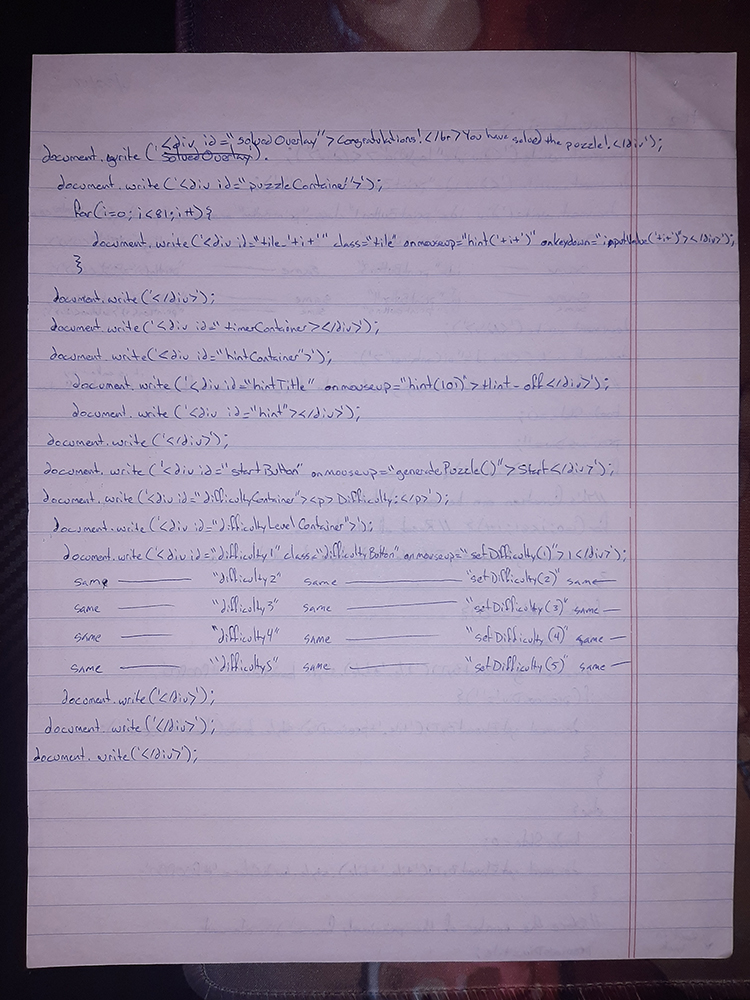 document.write('<div id="solvedOverlay">Congratulations!</br>You have solved the puzzle!</div>');
document.write('<div id="puzzleContainer">');
for(i=0; i<81; i++){
document.write('<div id="tile_'+i+'" class="tile" onmouseup="hint('+i+')" onkeydown="inputValue('+i+')"></div>');
}
document.write('</div>');
document.write('<div id="timerContainer></div>');
document.write('<div id="hintContainer">');
document.write('<div id="hintTitle" onmouseup="hint(101)">Hint-off</div>');
document.write('<div id="hint"></div>');
document.write('</div>');
document.write('<div id="startButton" onmouseup="generatePuzzle()">Start</div>');
document.write('<div id="difficultyContainer"><p>Difficulty:</p>');
document.write('<div id="difficultyLevelContainer">');
document.write('<div id="difficulty1" class="difficultyButton" onmouseup="setDifficulty(1)">1</div>');
same "difficulty2" same "setDifficulty(2)" same
same "difficulty3" same "setDifficulty(3)" same
same "difficulty4" same "setDifficulty(4)" same
same "difficulty5" same "setDifficulty(5)" same
document.write('</div>');
document.write('</div>');
document.write('</div>');